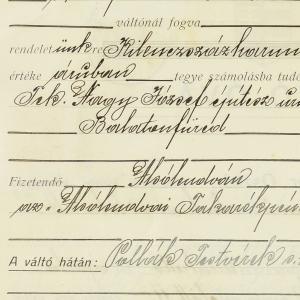 váltónál fogva
rendeletünkre Kilenczszázharmin
értéke áruban tegye számolásba tudó
Tek. Nagy József építész úr
Balatonfüred
Fizetendő Alsólendván
az „Alsólendvai Takarékpén
A váltó hátán: Pollák Testvérek s.